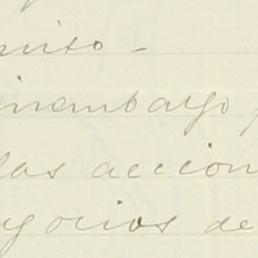 miso -
inembargo
las accion
gocios de